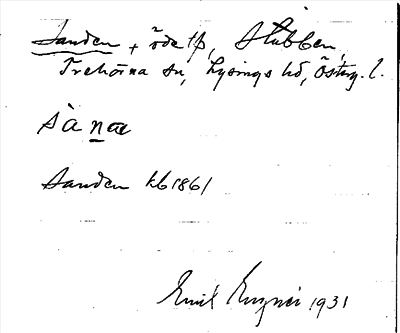 Sanden + öde tp, Stubben,
Trehörna sn, Lysings hd, Österg. l.
sànaɐ
Sanden kb 1861
Emil 1931